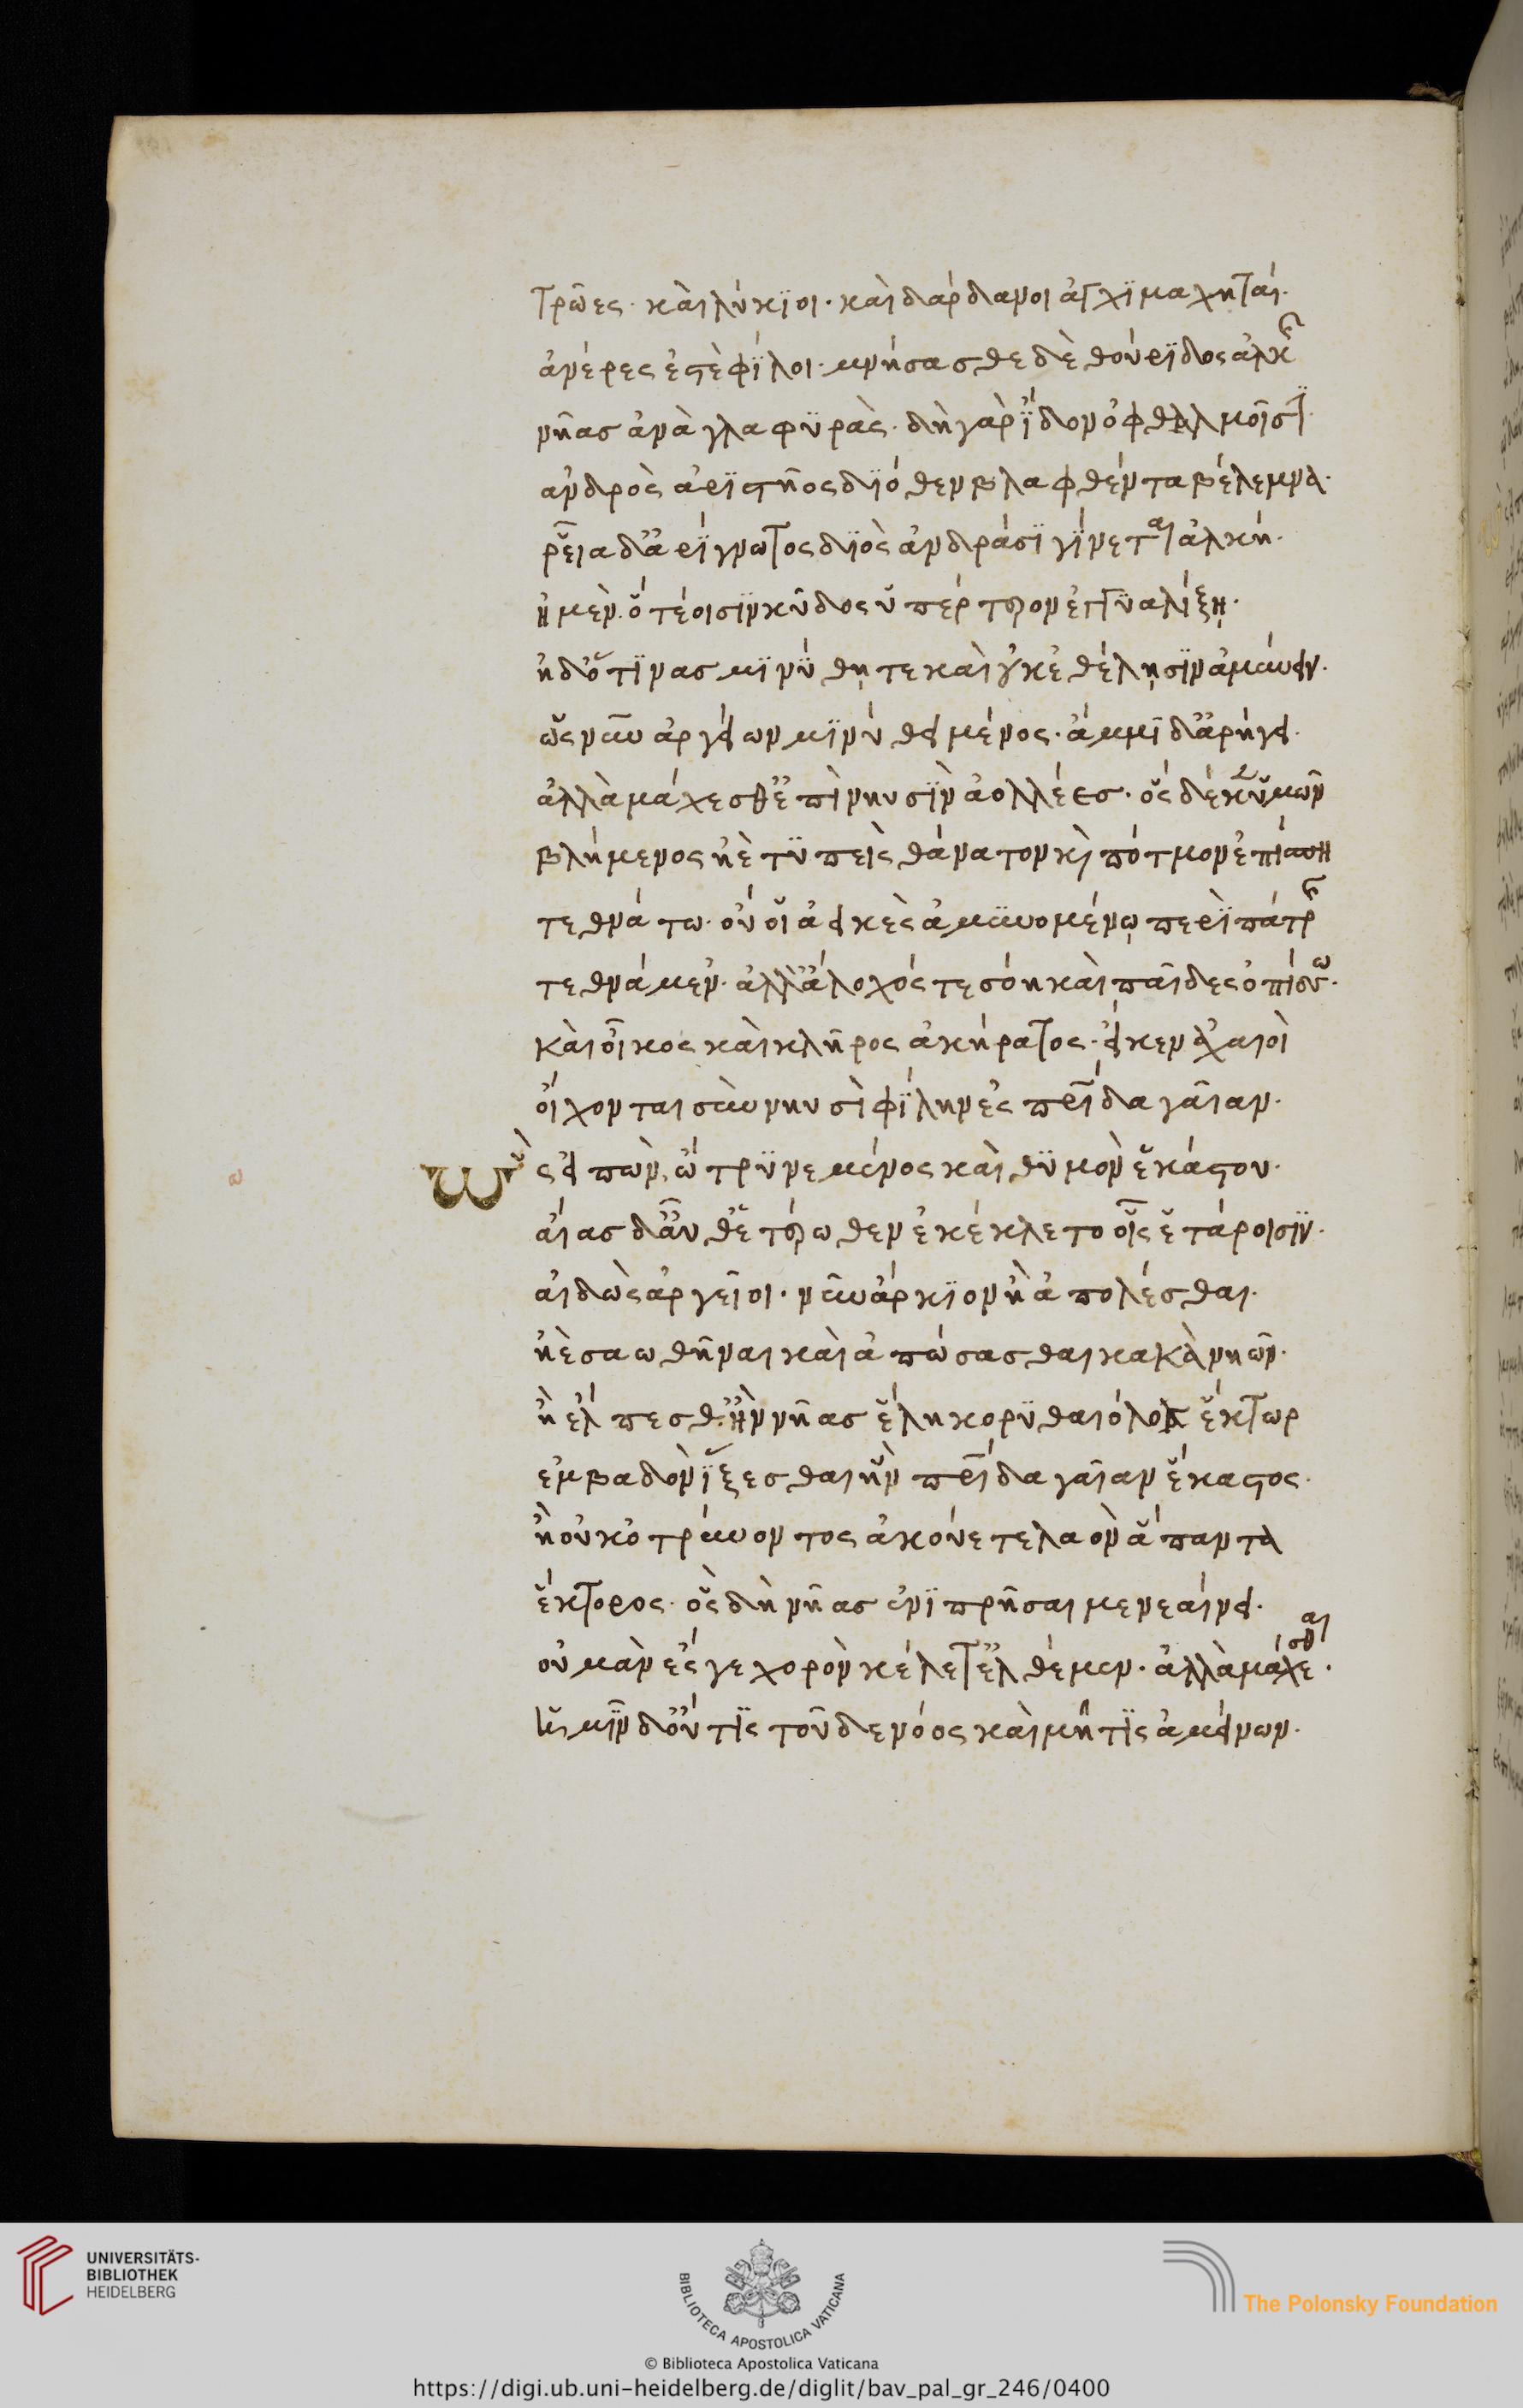 Τρῶες· καὶ λύκϊοι· καὶ δάρδανοι ἀγχϊμαχηταί·
ἀνέρες ἐστὲ φίλοι· μνήσασθε δὲ θούριδος ἀλκῆς
νῆας ἀνὰ γλαφυράς· δὴ γὰρ ἴδον ὀφθαλμοῖσι
ἀνδρὸς ἀριστῆος διόθεν βλαφθέντα βέλεμνα·
ῥεῖα δ' ἀρίγνωτος διὸς ἀνδράσι γίνεται ἀλκή·
ἠμὲν ὁτέοισιν κῦδος ὑπέρτερον ἐγγυαλίξη·
ἠδ' ὅτινας μινύθῃ τε καὶ οὐκ ἐθέλῃσιν ἀμύνειν·
ὡς νῦν ἀργείων μινύθει μένος· ἄμμι δ' ἀρήγει·
ἀλλὰ μάχεσθ' ἐπὶ νηυσὶν ἀολλέες· ὃς δέ κεν ὑμῶν
βλήμενος ἠὲ τυπεὶς θάνατον καὶ πότμον ἐπίσπη
τεθνάτω· οὔ οἱ ἀεικὲς ἀμυνομένῳ περὶ πάτρης
τεθνάμεν· ἀλλ' ἄλοχός τε σόη καὶ παῖδες ὀπίσσω·
καὶ οἶκος καὶ κλῆρος ἀκήρατος· εἴ κεν ἀχαιοὶ
οἴχονται σὺν νηυσὶ φίλην ἐς πατρίδα γαῖαν·
Ὣς εἰπὼν, ὤτρυνε μένος καὶ θυμὸν ἑκάστου·
αἴας δ' αὖθ' ἑτέρωθεν ἐκέκλετο οἷς ἑτάροισιν·
αἰδὼς ἀργεῖοι· νῦν ἄρκιον ἢ ἀπολέσθαι·
ἠὲ σαωθῆναι καὶ ἀπώσασθαι κακὰ νηῶν·
ἢ ἔλπεσθ' ἢν νῆας ἕλη κορυθαίολος ἕκτωρ
ἐμβαδὸν ἵξεσθαι ἣν πατρίδα γαῖαν ἕκαστος·
ἢ οὐκ ὀτρύνοντος ἀκούετε λαὸν ἅπαντα
ἕκτορος· ὃς δὴ νῆας ἐνιπρῆσαι μενεαίνει·
οὐ μὰν ἔς γε χορὸν κέλετ' ἐλθέμεν· ἀλλὰ μάχεσθαι·
ἡμῖν δ' οὔτις τοῦδε νόος καὶ μῆτις ἀμείνων·
ω
UNIVERSITÄTS-
BIBLIOTHEK
HEIDELBERG
BIBLIOTECA APOSTOLICA VATICANA
The Polonsky Foundation
© Biblioteca Apostolica Vaticana
https://digi.ub.uni-heidelberg.de/diglit/bav_pal_gr_246/0400